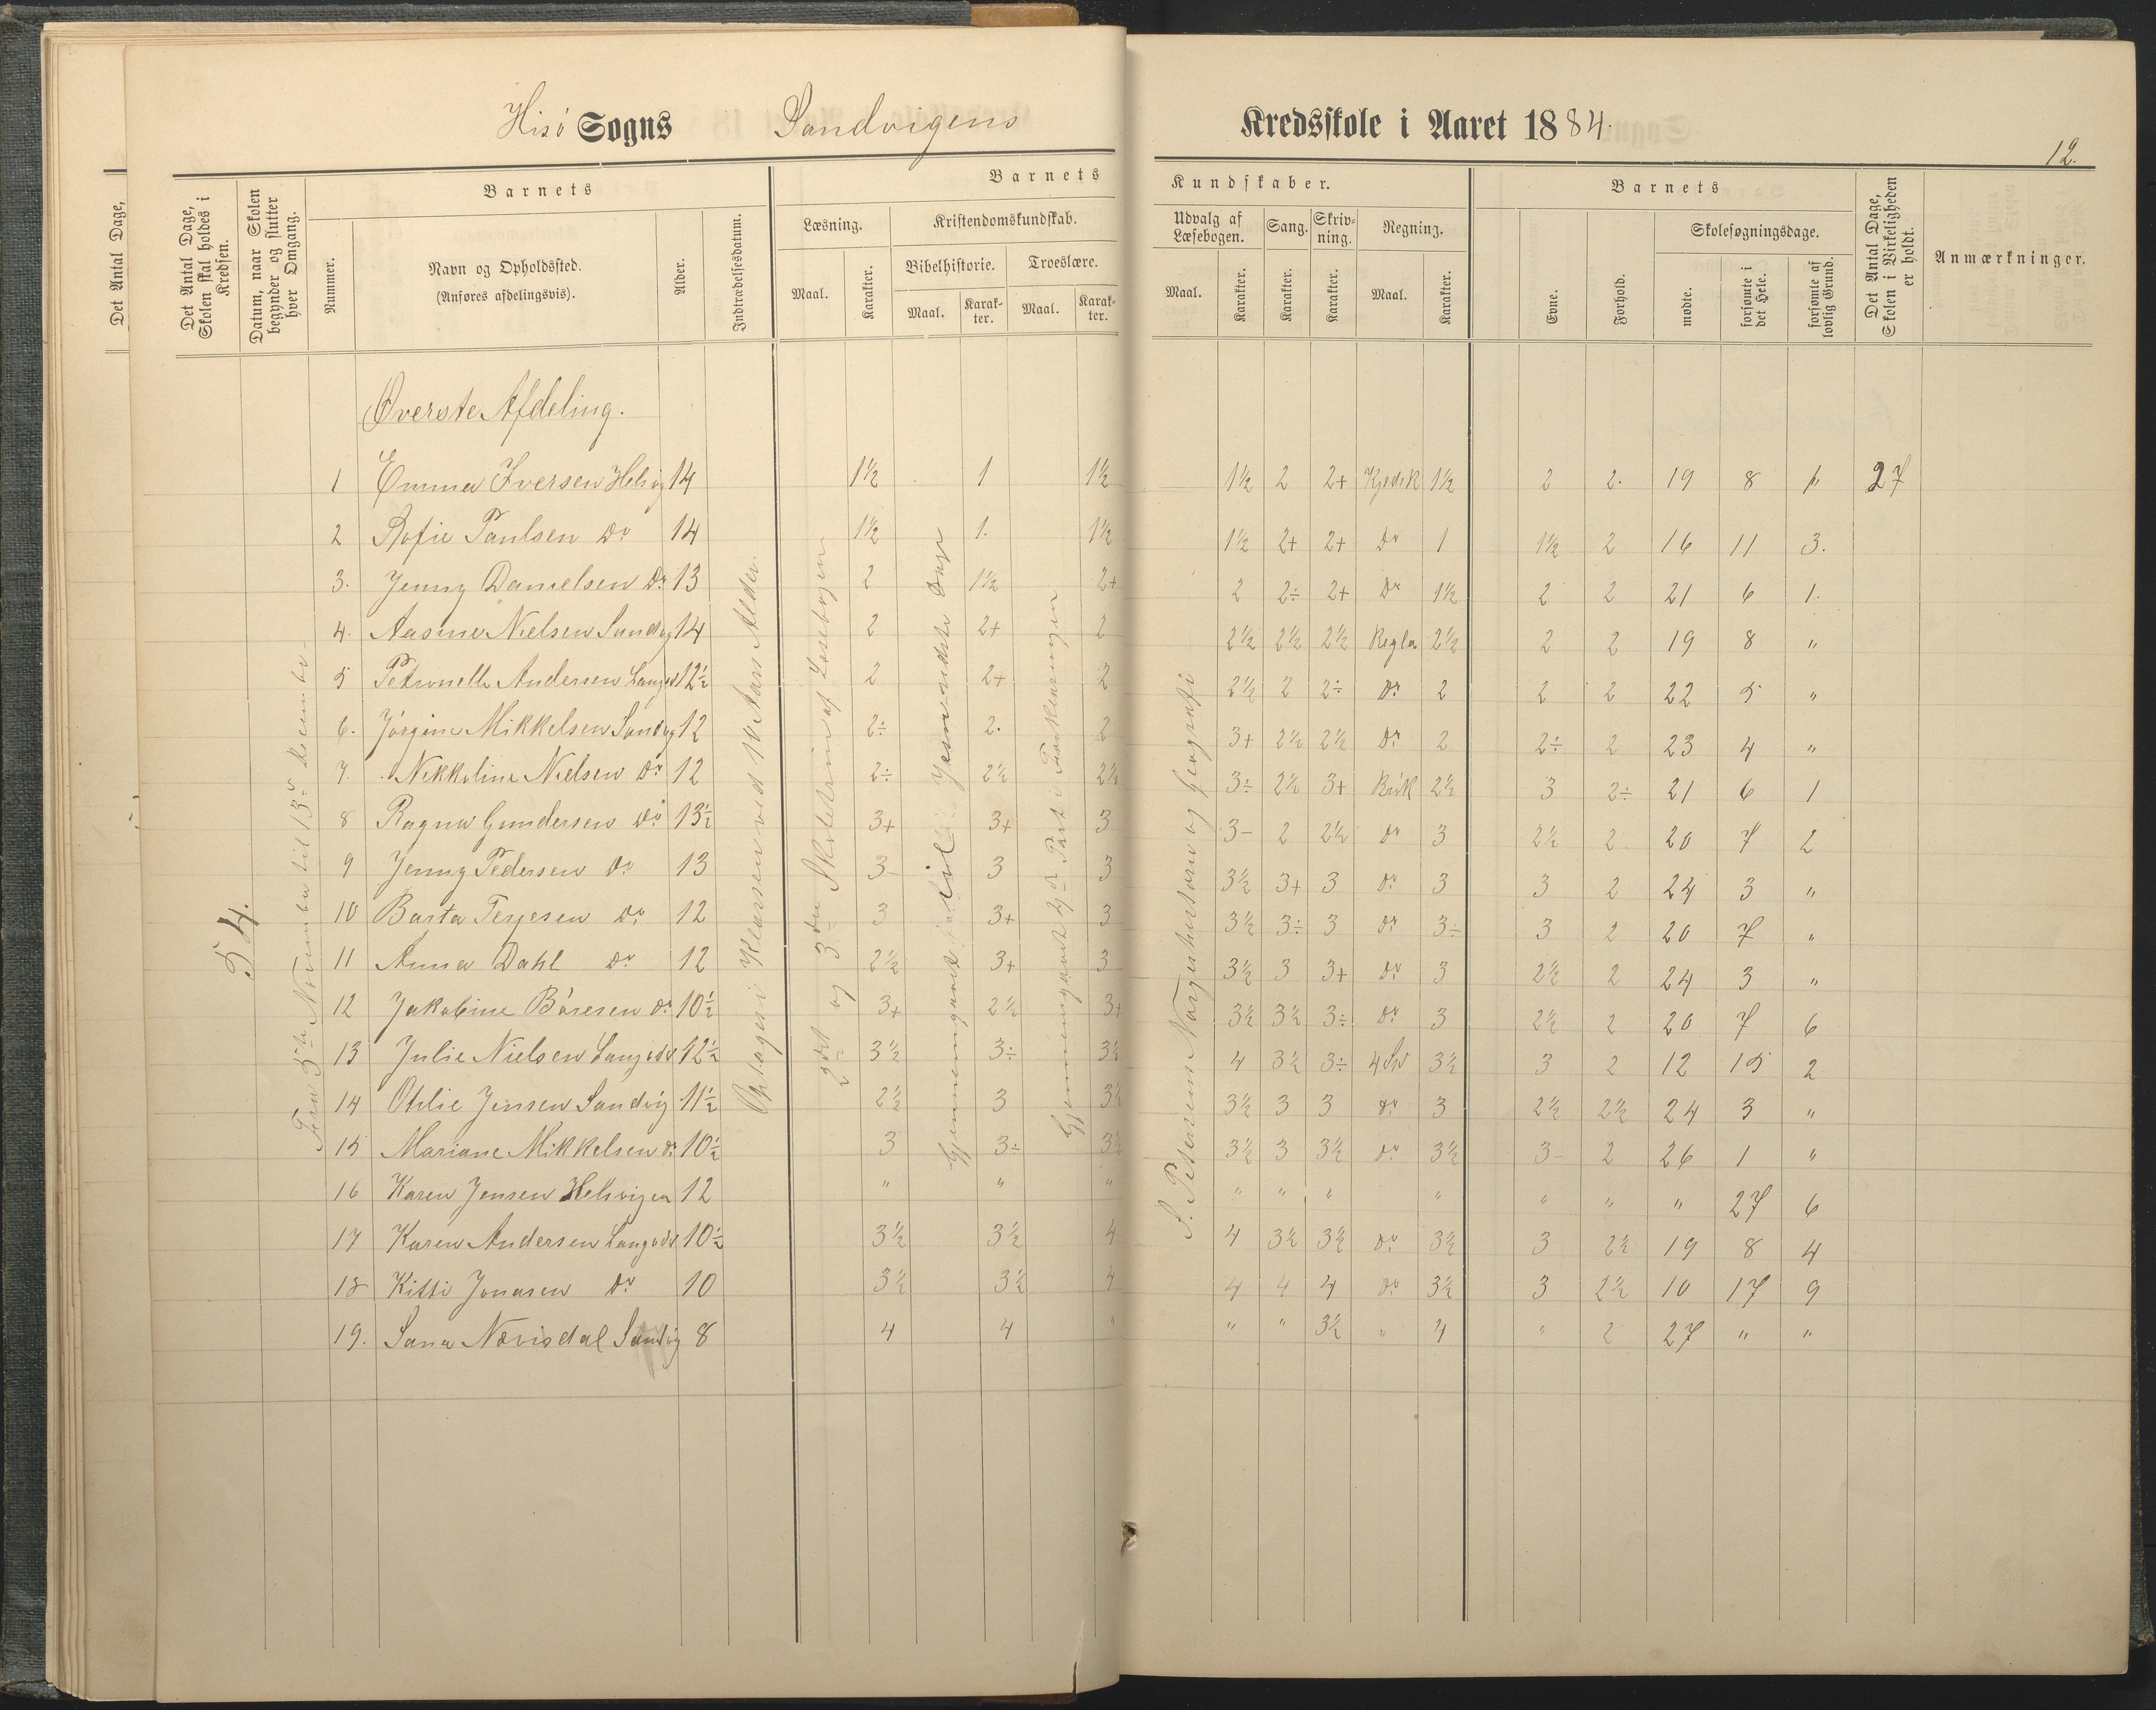 Hisö Sogns Sandvigens Kredsskole i Aaret 1884.
12.
Det Antal Dage,
Det Antal Dage, Skolen skal holdes i Kredsen.
Datum, naar Skolen begynder og slutter hver Omgang.
Barnets
Nummer.
Navn og Opholdssted.
(Anføres afdelingsvis).
Alder.
Indtrædelsesdatum.
Barnets Kundskaber.
Læsning.
Maal.
Karakter.
Kristendomskundskab.
Bibelhistorie.
Maal.
Karakter.
Troeslære.
Maal.
Karakter.
Udvalg af Læsebogen.
Maal.
Karakter.
Sang.
Karakter.
Skrivning.
Karakter.
Regning.
Maal.
Karakter.
Barnets
Evne.
Forhold.
Skolesøgningsdage.
mødte.
forsømte i det Hele.
forsømte af lovlig Grund.
Det Antal Dage, Skolen i Virkeligheden er holdt.
Anmærkninger.
54.
Fra 5te November til 13de December
Optages i Klassen ved 10 Aars Alder.
2det og 3die Skoletrin af Læsebogen
Gjennemgaaet
Gjennemgaaet 2den Part i Forklaringen
S. Petersens Norgeshistorie og Geografi
Øverste Afdeling.
1 Emma Iversen Helvig 14 1½ 1 1½ 1½ 2 2+ Kjedek 1½ 2 2. 19 8 1. 27
2 Sofie Paulsen Do 14 1½ 1. 1½ 1½ 2+ 2+ Do 1 1½ 2 16 11 3.
3. Jenny Danielsen Do 13 2 1½ 2+ 2 2÷ 2+ Do 1½ 2 2 21 6 1.
4. Aasine Nielsen Sandvig 14 2 2+ 2 2½ 2½ 2½ Regla 2½ 2 2 19 8 "
5 Petronelle Andersen Langs 12½ 2 2+ 2 2½ 2 2÷ Do 2 2 2 22 5 "
6. Jörgine Mikkelsen Sandvig 12 2÷ 2. 2 3+ 2½ 2½ Do 2 2÷ 2 23 4 "
7. Nikkoline Nielsen Do 12 2÷ 2½ 2½ 3÷ 2½ 3+ Brök 2½ 3 2÷ 21 6 1
8 Ragna Gundersen Do 13½ 3+ 3+ 3 3- 2 2½ Do 3 2½ 2 20 7 2
9 Jenny Pedersen Do 13 3- 3 3 3½ 3+ 3 Do 3 3 2 24 3 "
10 Barta Terjesen Do 12 3 3+ 3 3½ 3÷ 3 Do 3÷ 3 2 20 7 "
11 Anna Dahl Do 12 2½ 3+ 3 3½ 3 3+ Do 3 2½ 2 24 3 "
12 Jakobine Börresen Do 10½ 3+ 2½ 3+ 3½ 3½ 3÷ Do 3 2½ 2 20 7 6
13 Julie Nielsen Langsd 12½ 3½ 3÷ 3½ 4 3½ 3÷ 3½ 3 2 12 15 2
14 Othlie Jensen Sandvig 11½ 2½ 3 3½ 3½ 3 3 Do 3 2½ 2½ 24 3 "
15 Mariane Mikkelsen Do 10½ 3 3÷ 3½ 3½ 3 3½ Do 3½ 3- 2 26 1 "
16 Karen Jensen Helvigen 12 " " " " " " " " " " 27 6
17 Karen Andersen Langsd 10½ 3½ 3½ 4 4 3½ 3½ Do 3½ 3 2½ 19 8 4
18 Kitti Jonasen Do 10 3½ 3½ 4 4 4 4 Do 3½ 3 2½ 10 17 9
19. Sana Nævisdal Sandvig 8 4 4 " " " 3½ " 4 " 2 27 " "